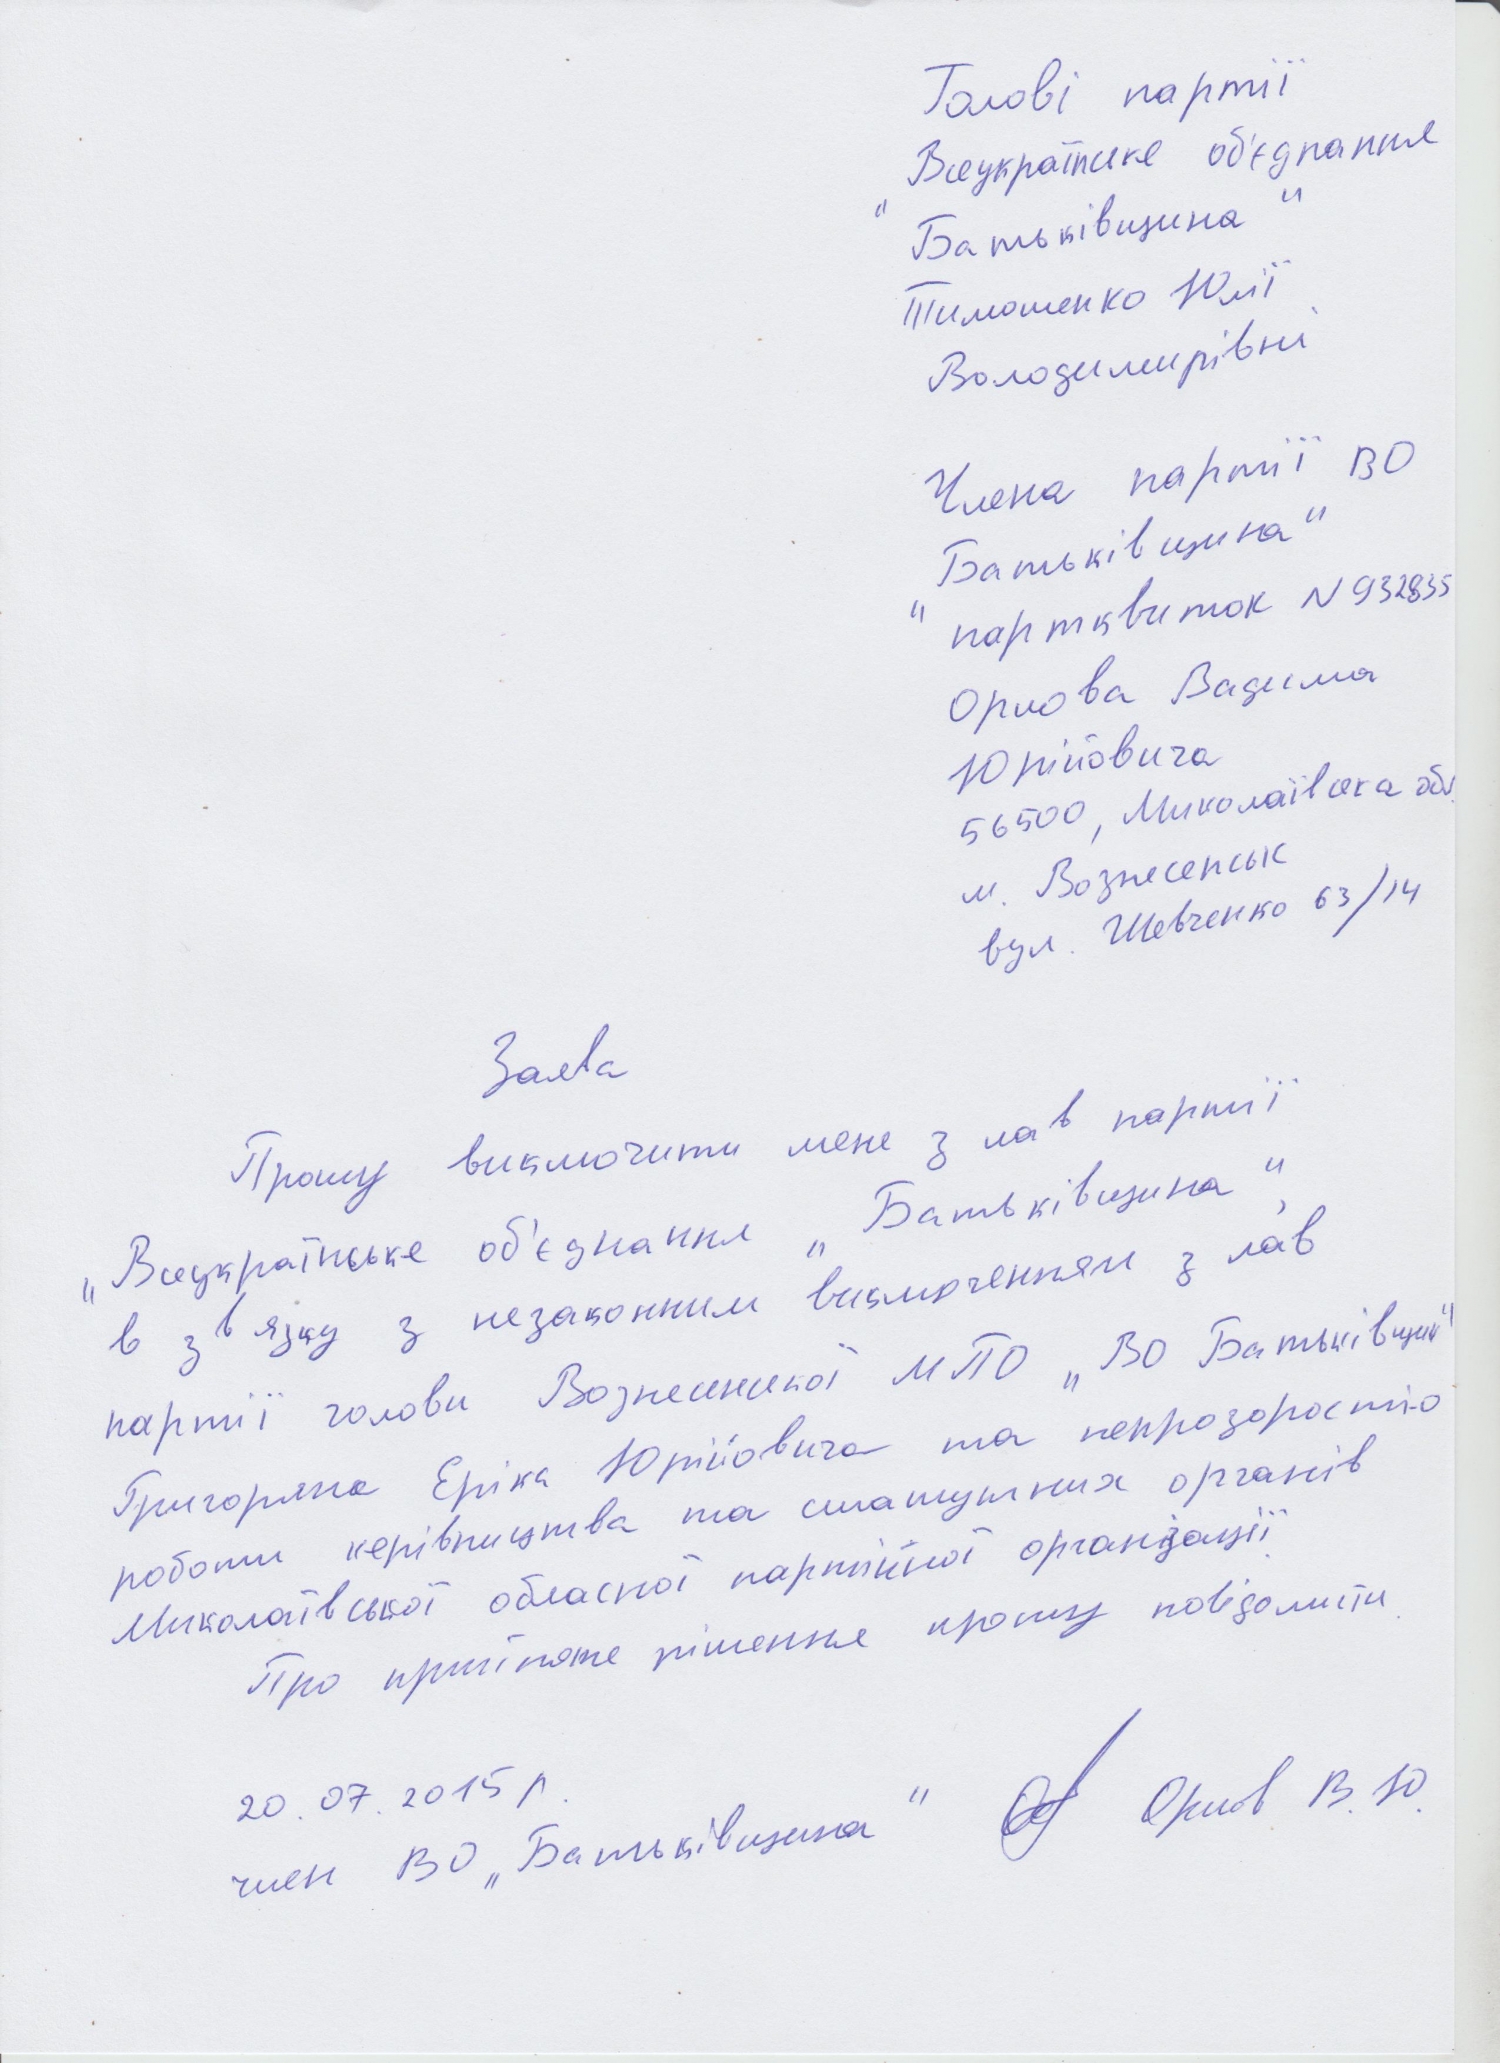 Голові партії
Всеукраїнське об'єднання
"Батьківщина"
Тимошенко Юлії
Володимирівні
Члена партії ВО
"Батьківщина"
партквиток N 932835
Орлова Вадима
Юрійовича
56500, Миколаївська обл.
м. Вознесенськ
вул. Шевченко 63/14
Заява
Прошу виключити мене з лав партії
„Всеукраїнське об'єднання „Батьківщина",
в зв'язку з незаконним виключенням з лав
партії голови Вознесенської МПО „ВО Батьківщин"
Григоряна Еріка Юрійовича та непрозоростю
роботи керівництва та статутних органів
Миколаївської обласної партійної організації.
Про прийняте рішення прошу повідомити.
20.07.2015 р.
член ВО „Батьківщина" Орлов В.Ю.